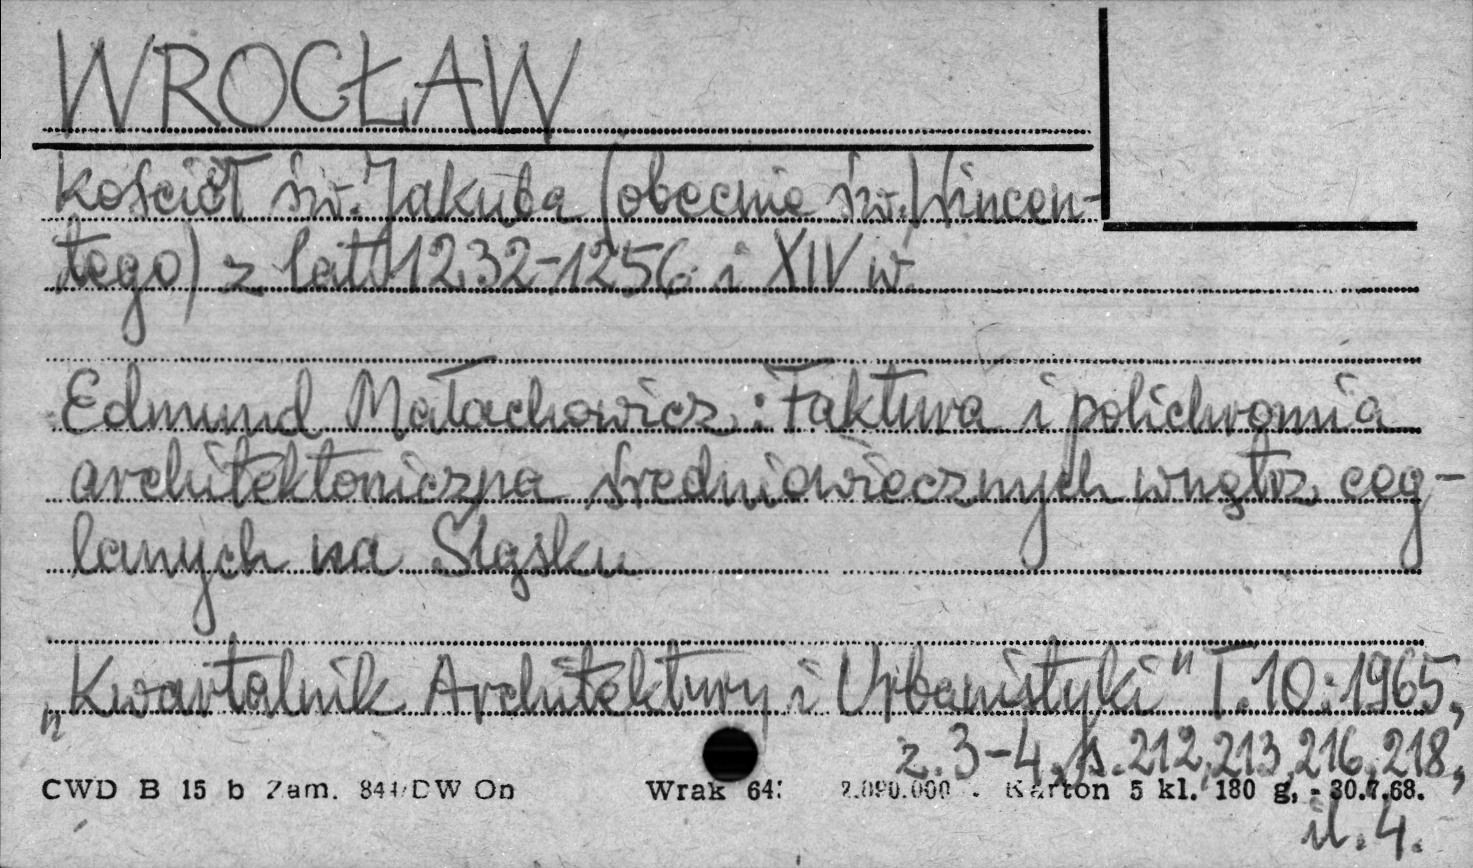 WROCŁAW
Kościół św. Jakuba (obecnie św. Wincen-
tego) z lat 1232-1256 i XIV w.
Edmund Małachowicz: Faktura i polichromia
architektoniczna średniowiecznych wnętrz ceg-
lanych na Śląsku
„Kwartalnik Architektury i Urbanistyki" T.10:1965,
z.3-4, s.212,213,216,218,
CWD B 15 b Zam. DW On Wrak Karton 5 kl. 180 g, - 30.7.68.
il.4.